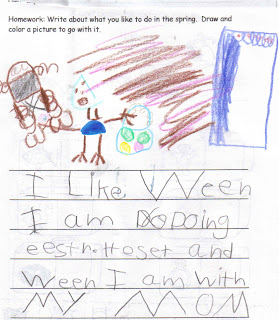 Homework: Write about what you like to do in the spring. Draw and
color a picture to go with it.
I Like Ween
I am Doing
and
Ween I am with
MY MOM